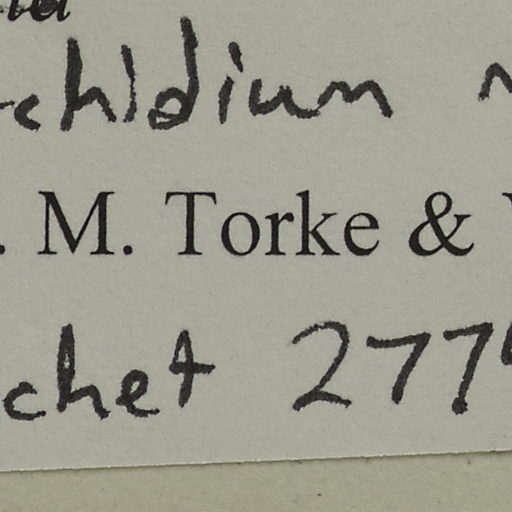 chidium
. M. Torke &
chet 277